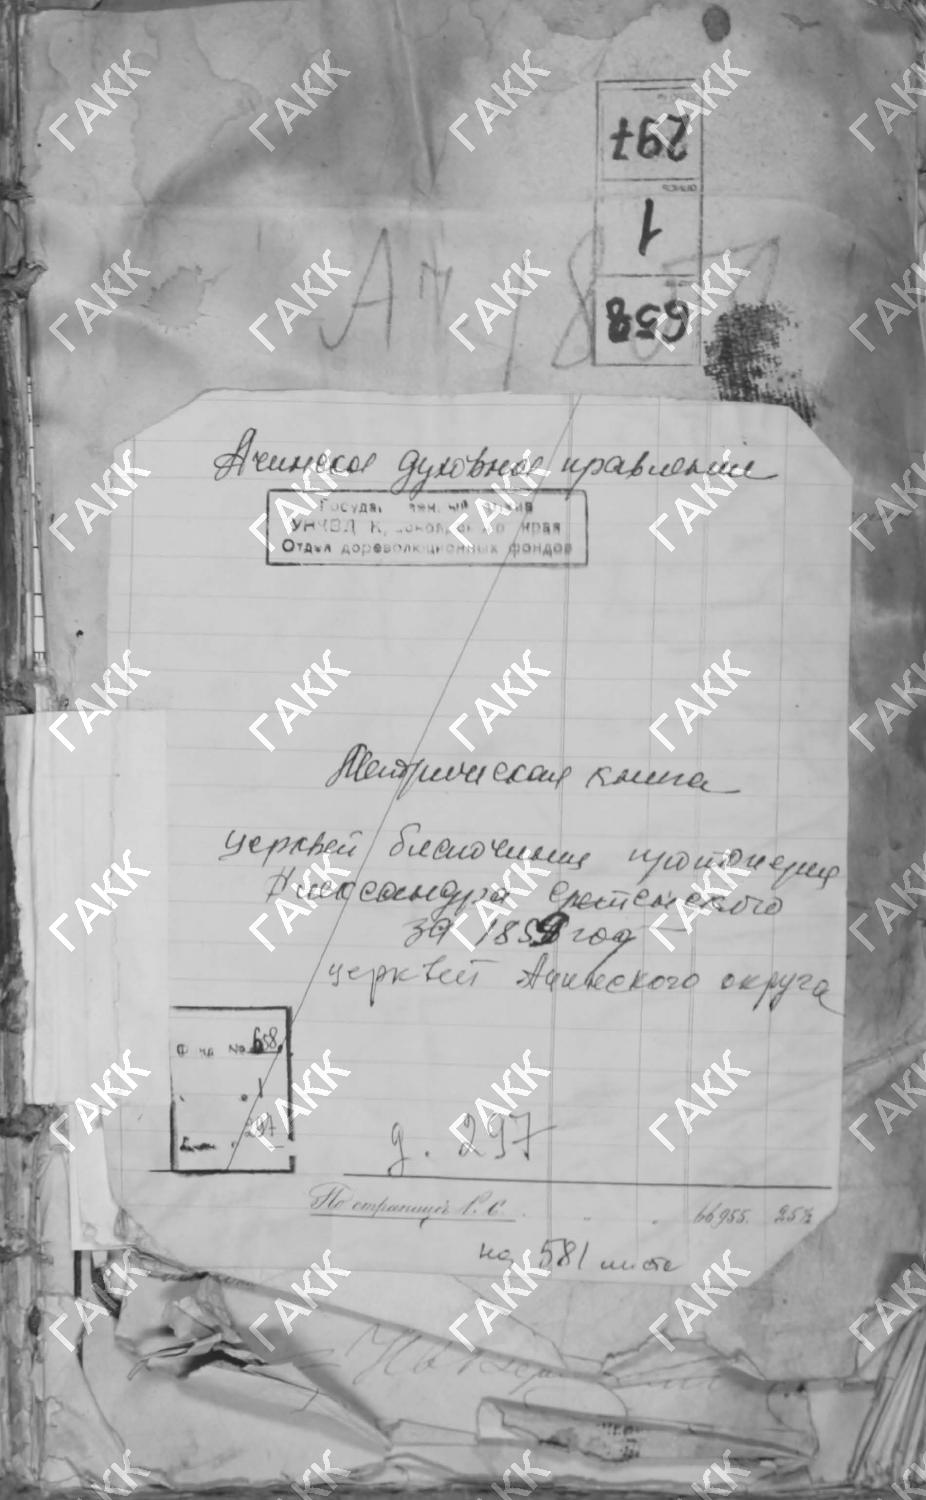 297
1
опись
658
Ач. 18
Ачинское духовное правление
Государственный архив
УНКВД Красноярского края
Отдел дореволюционных фондов
Метрическая книга
церквей благочиния протоиерея
Александра Сретенского
за 1859 год
церквей Ачинского округа
Фонд № 658
1
297
д. 297
По страницѣ
66955. 25½
на 581 листе
ГАКК